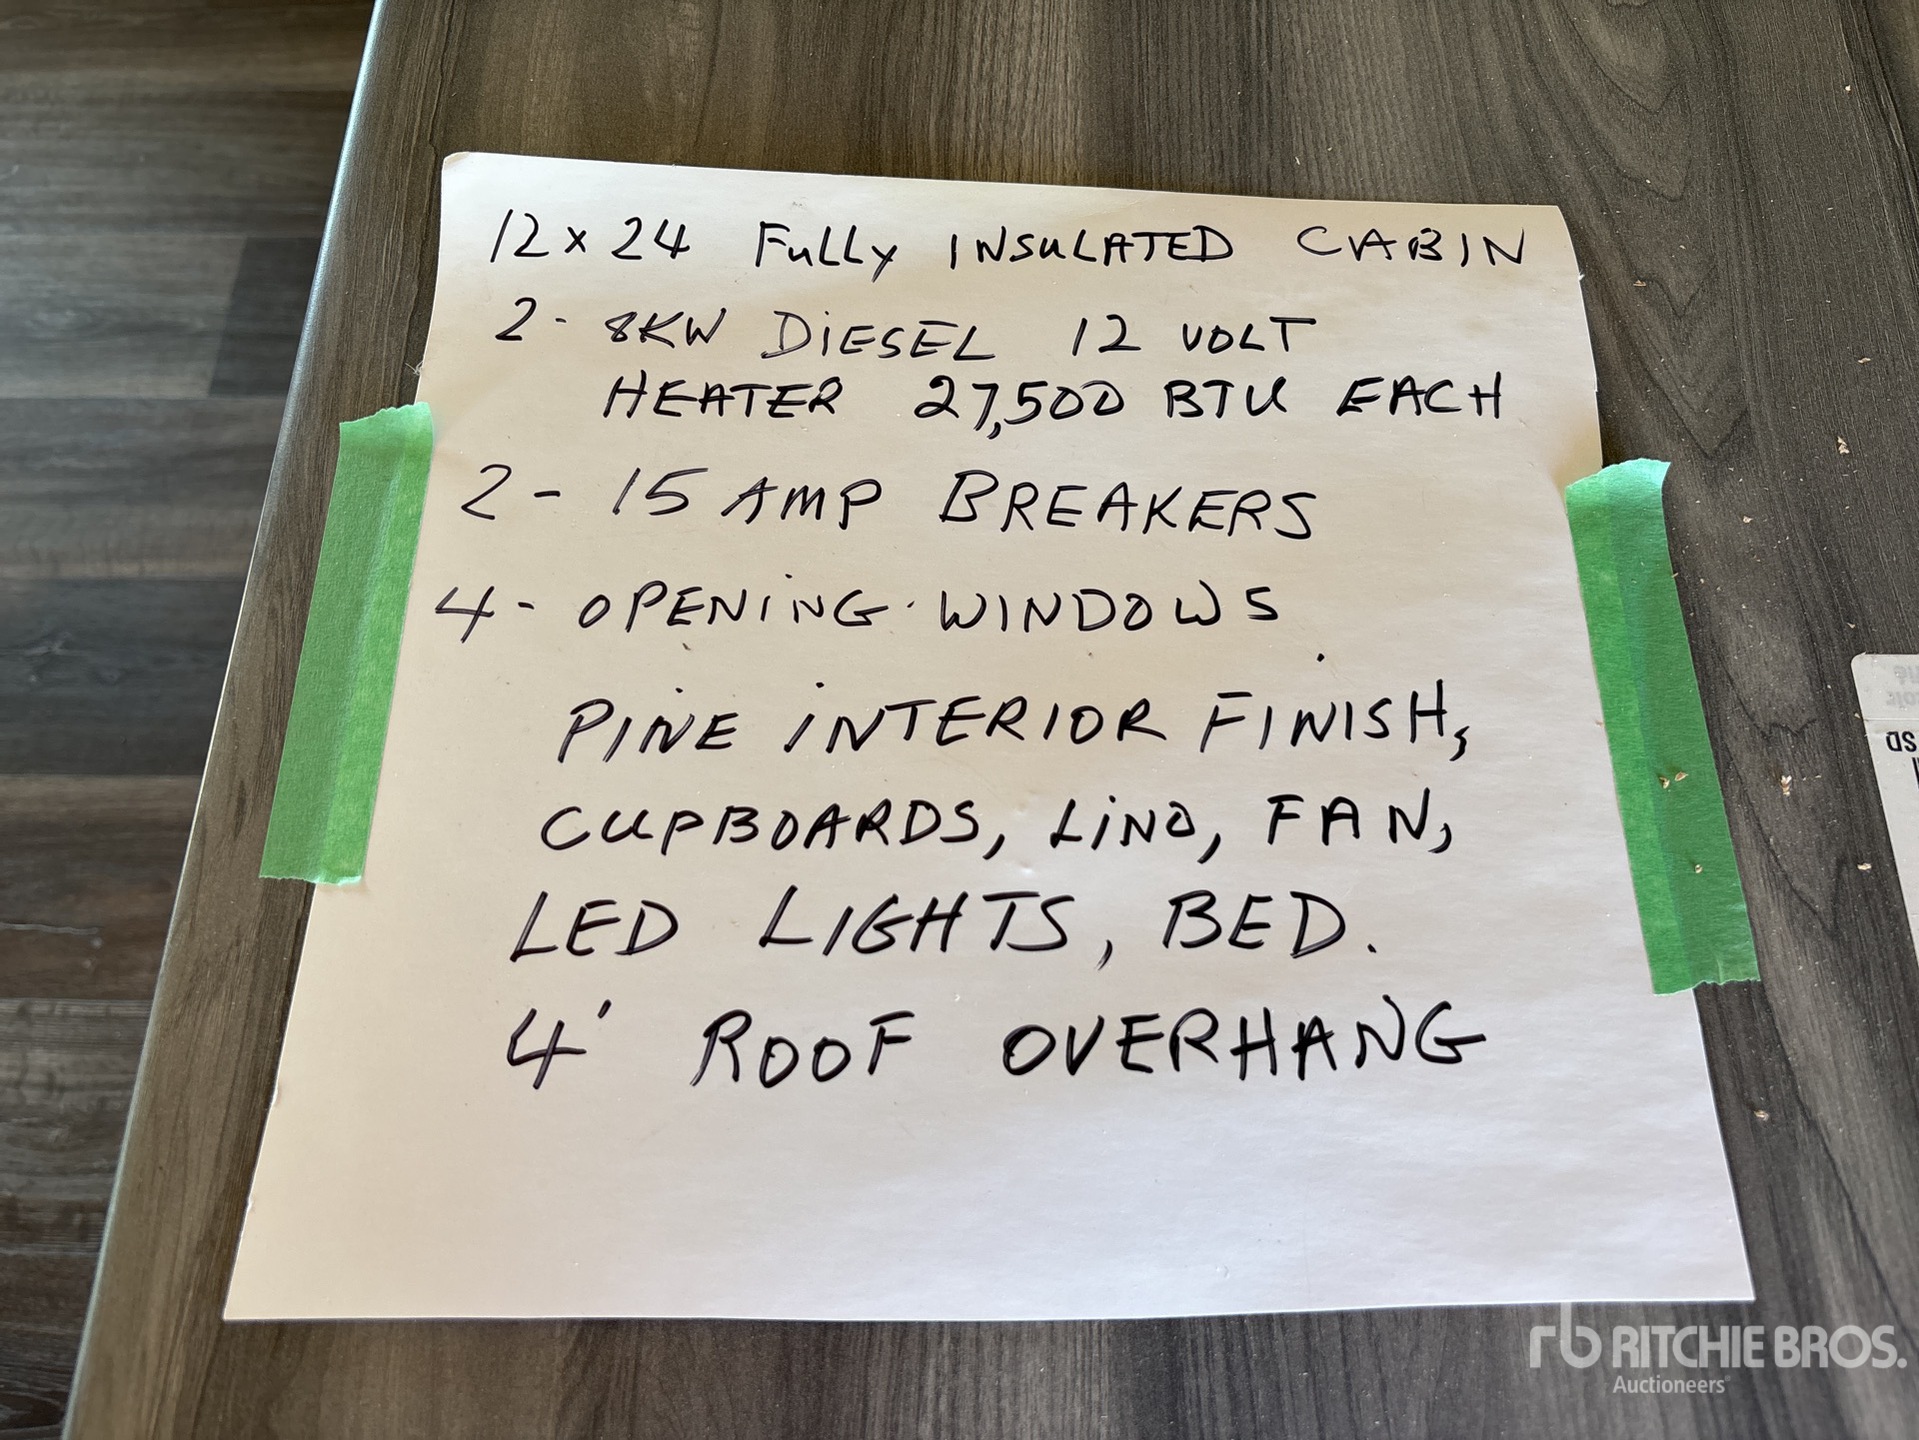 12 x 24 Fully INSULATED CABIN
2 - 8KW DiESEL 12 VOLT
HEATER 27,500 BTU EACH
2 - 15 AMP BREAKERS
4 - OPENiNG WINDOWS
PINE iNTERIOR FINISH,
CUPBOARDS, LiNO, FAN,
LED LIGHTS, BED.
4' ROOF OVERHANG
rb RITCHIE BROS.
Auctioneers